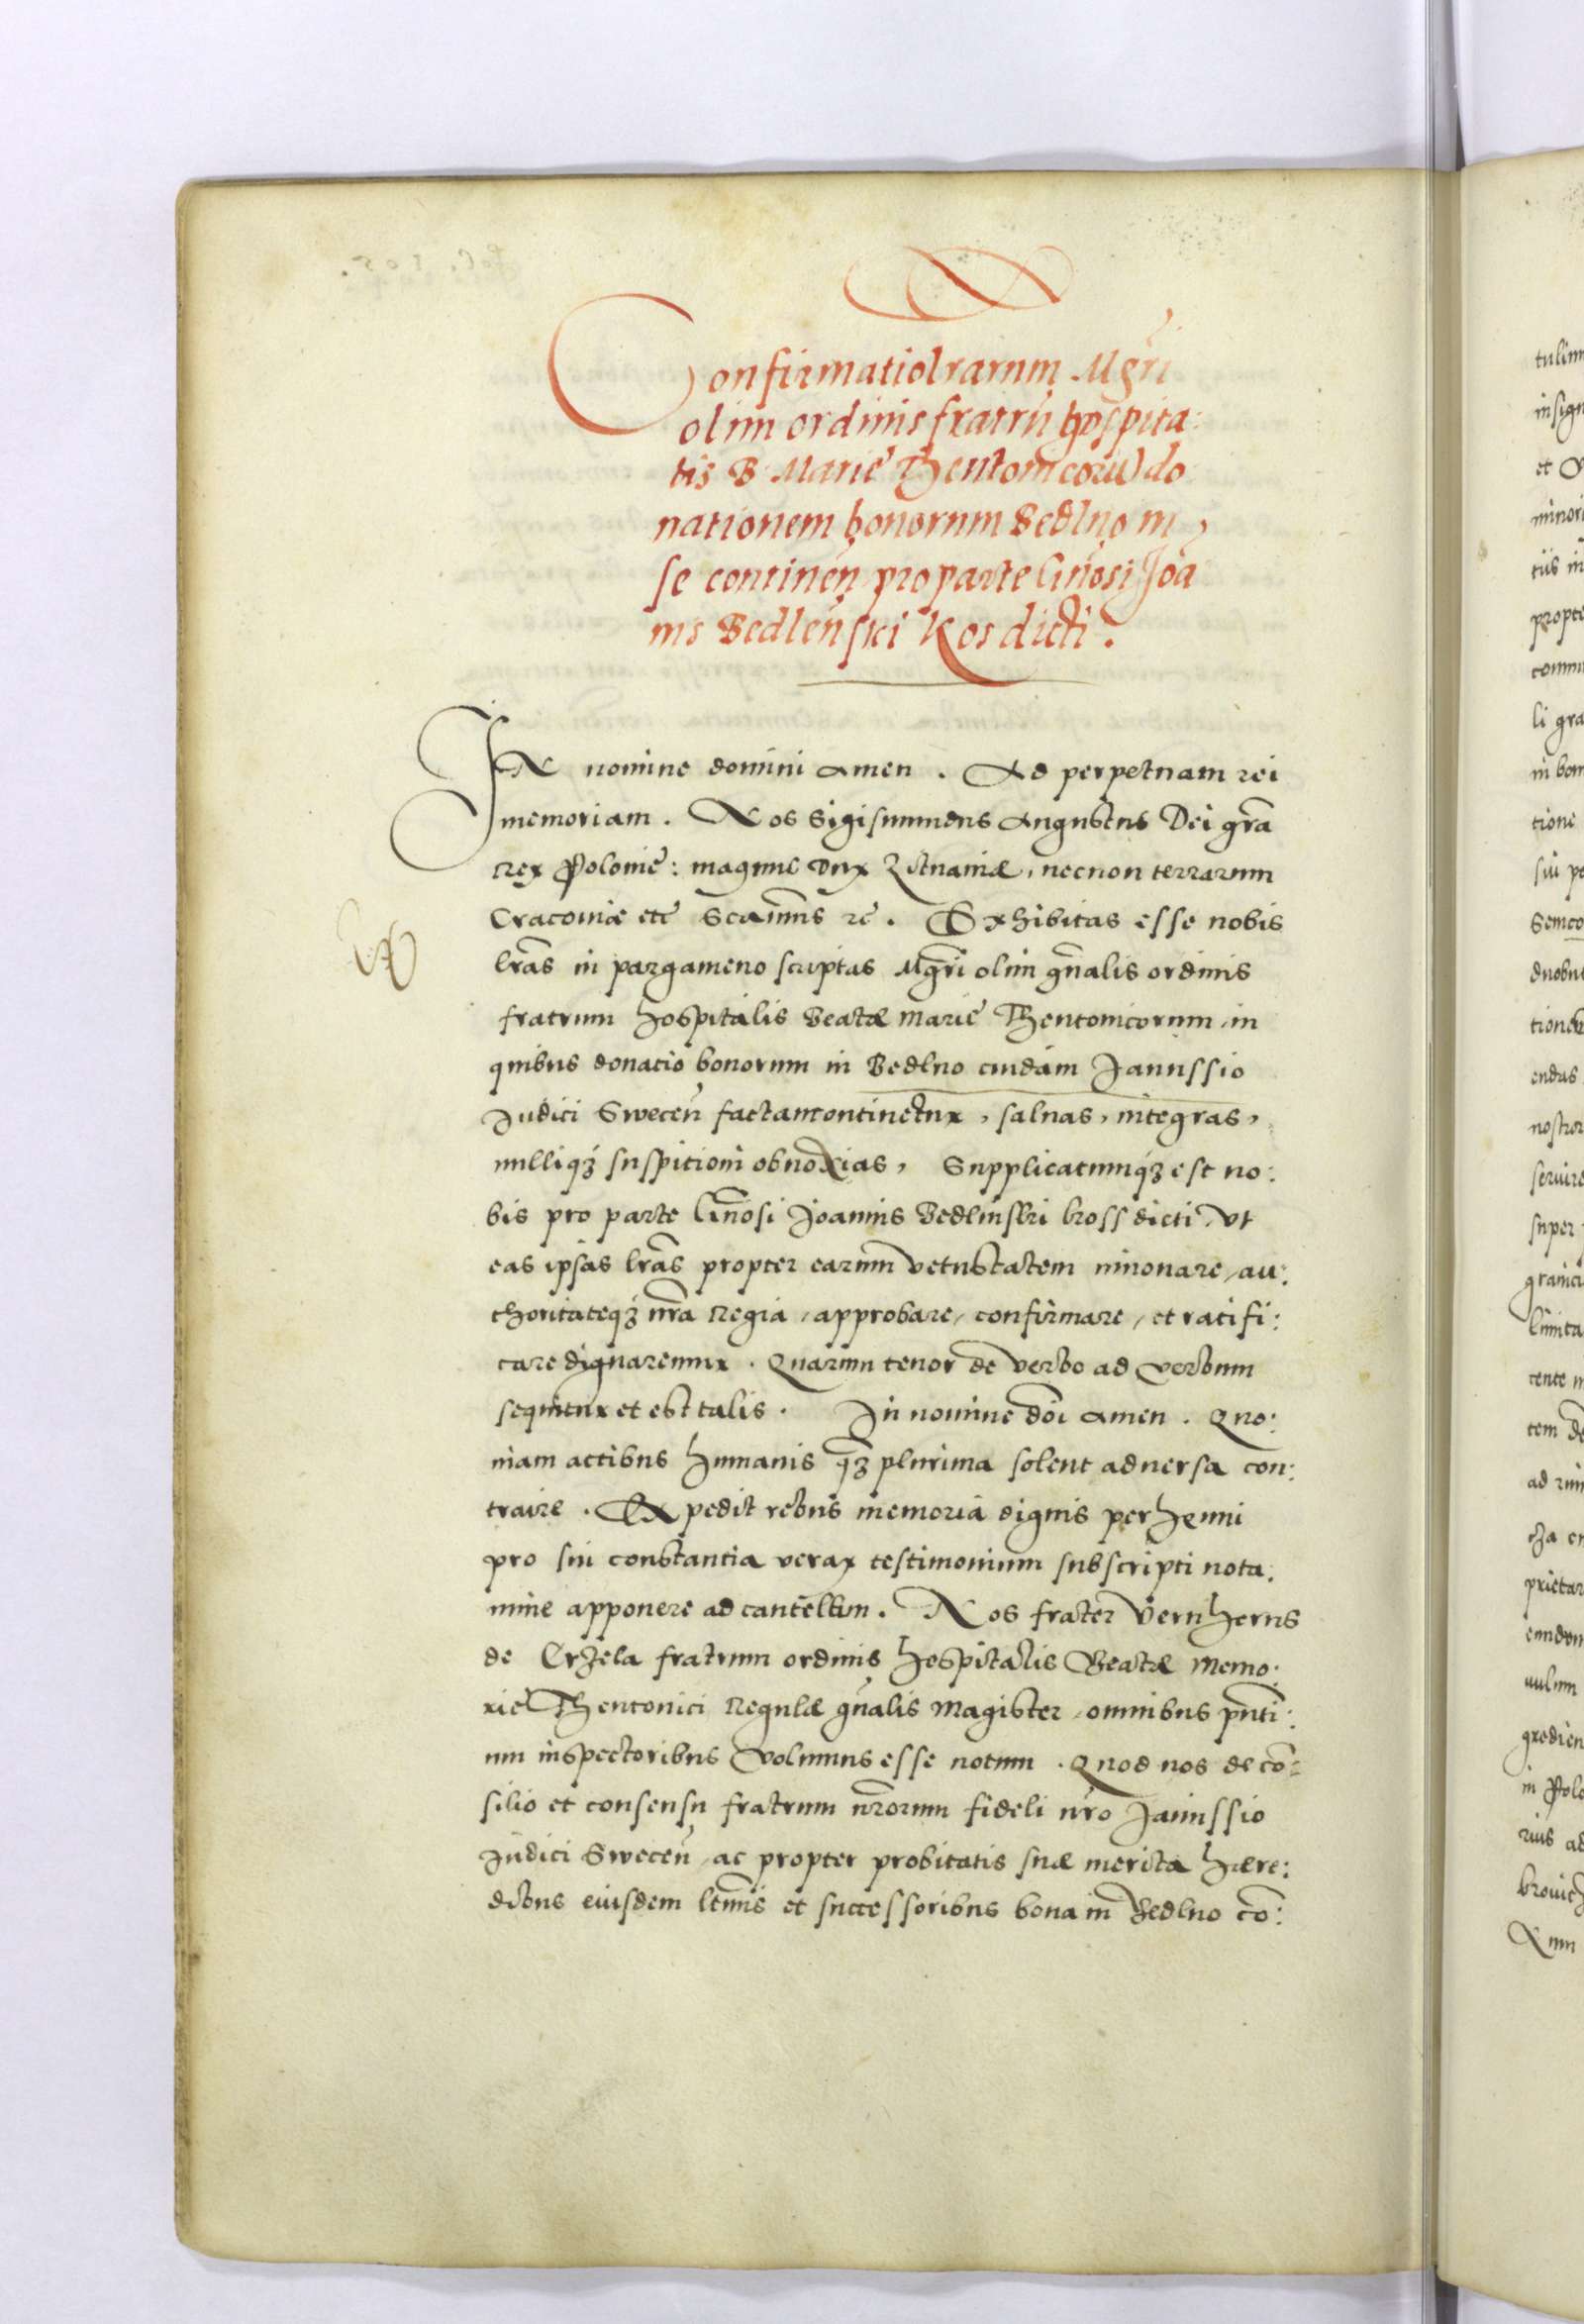 Confirmatio lrarum Mgri
olim ordinis fratrũ hospita:
lis B Marie Theutonicorũ do
nationem bonorum Bedlno in
se continen̄ pro parte Gn̄osi Joã
nis Bedlen̄ski Kos dicti.
IN nomine domini amen. Ad perpetuam rei
memoriam. Nos Sigismundus Augustus Dei gr̃a
Rex Polonie: magnus Dux Lituaniæ, necnon terrarum
Cracoviæ etc̃ Scimus ꝛc̃. Exhibitas esse nobis
lr̃as in pargameno scriptas Mgr̃i olim gñalis ordinis
fratrum hospitalis Beatæ Marie Theutonicorum, in
quibus donatio bonorum in Bedlno cuidam Janussio
Judici Swecen̄ facta continetur, salvas, integras,
nulliqꝫ suspitioni obnoxias, Supplicatumqꝫ est no:
bis pro parte Gñosi Joannis Bedlinski koss dicti, vt
eas ipsas lr̃as propter earum vetustatem innovare, au:
thoritateqꝫ nr̃a Regia, approbare, confirmare, et ratifi:
care dignaremur. Quarum tenor de verbo ad verbum
sequitur et est talis. In nomine dõi amen. Quo:
niam actibus humanis qꝫ plurima solent adversa con:
traire. Expedit rebus memoria dignis perhenni
pro sui constantia verax testimonium subscripti nota:
mine apponere ad cautellam. Nos frater Vernherus
de Erzela fratrum ordinis hospitalis Beatæ Memo:
rie Theutonici Regulæ gñalis Magister, omnibus pñti:
um inspectoribus volumus esse notum. Quod nos de cõ:
silio et consensu fratrum nr̃orum fideli nr̃o Janussio
Judici Swecen̄, ac propter probitatis suæ merita hære:
dibus eiusdem ltmis et successoribus bona in Bedlno cõ: